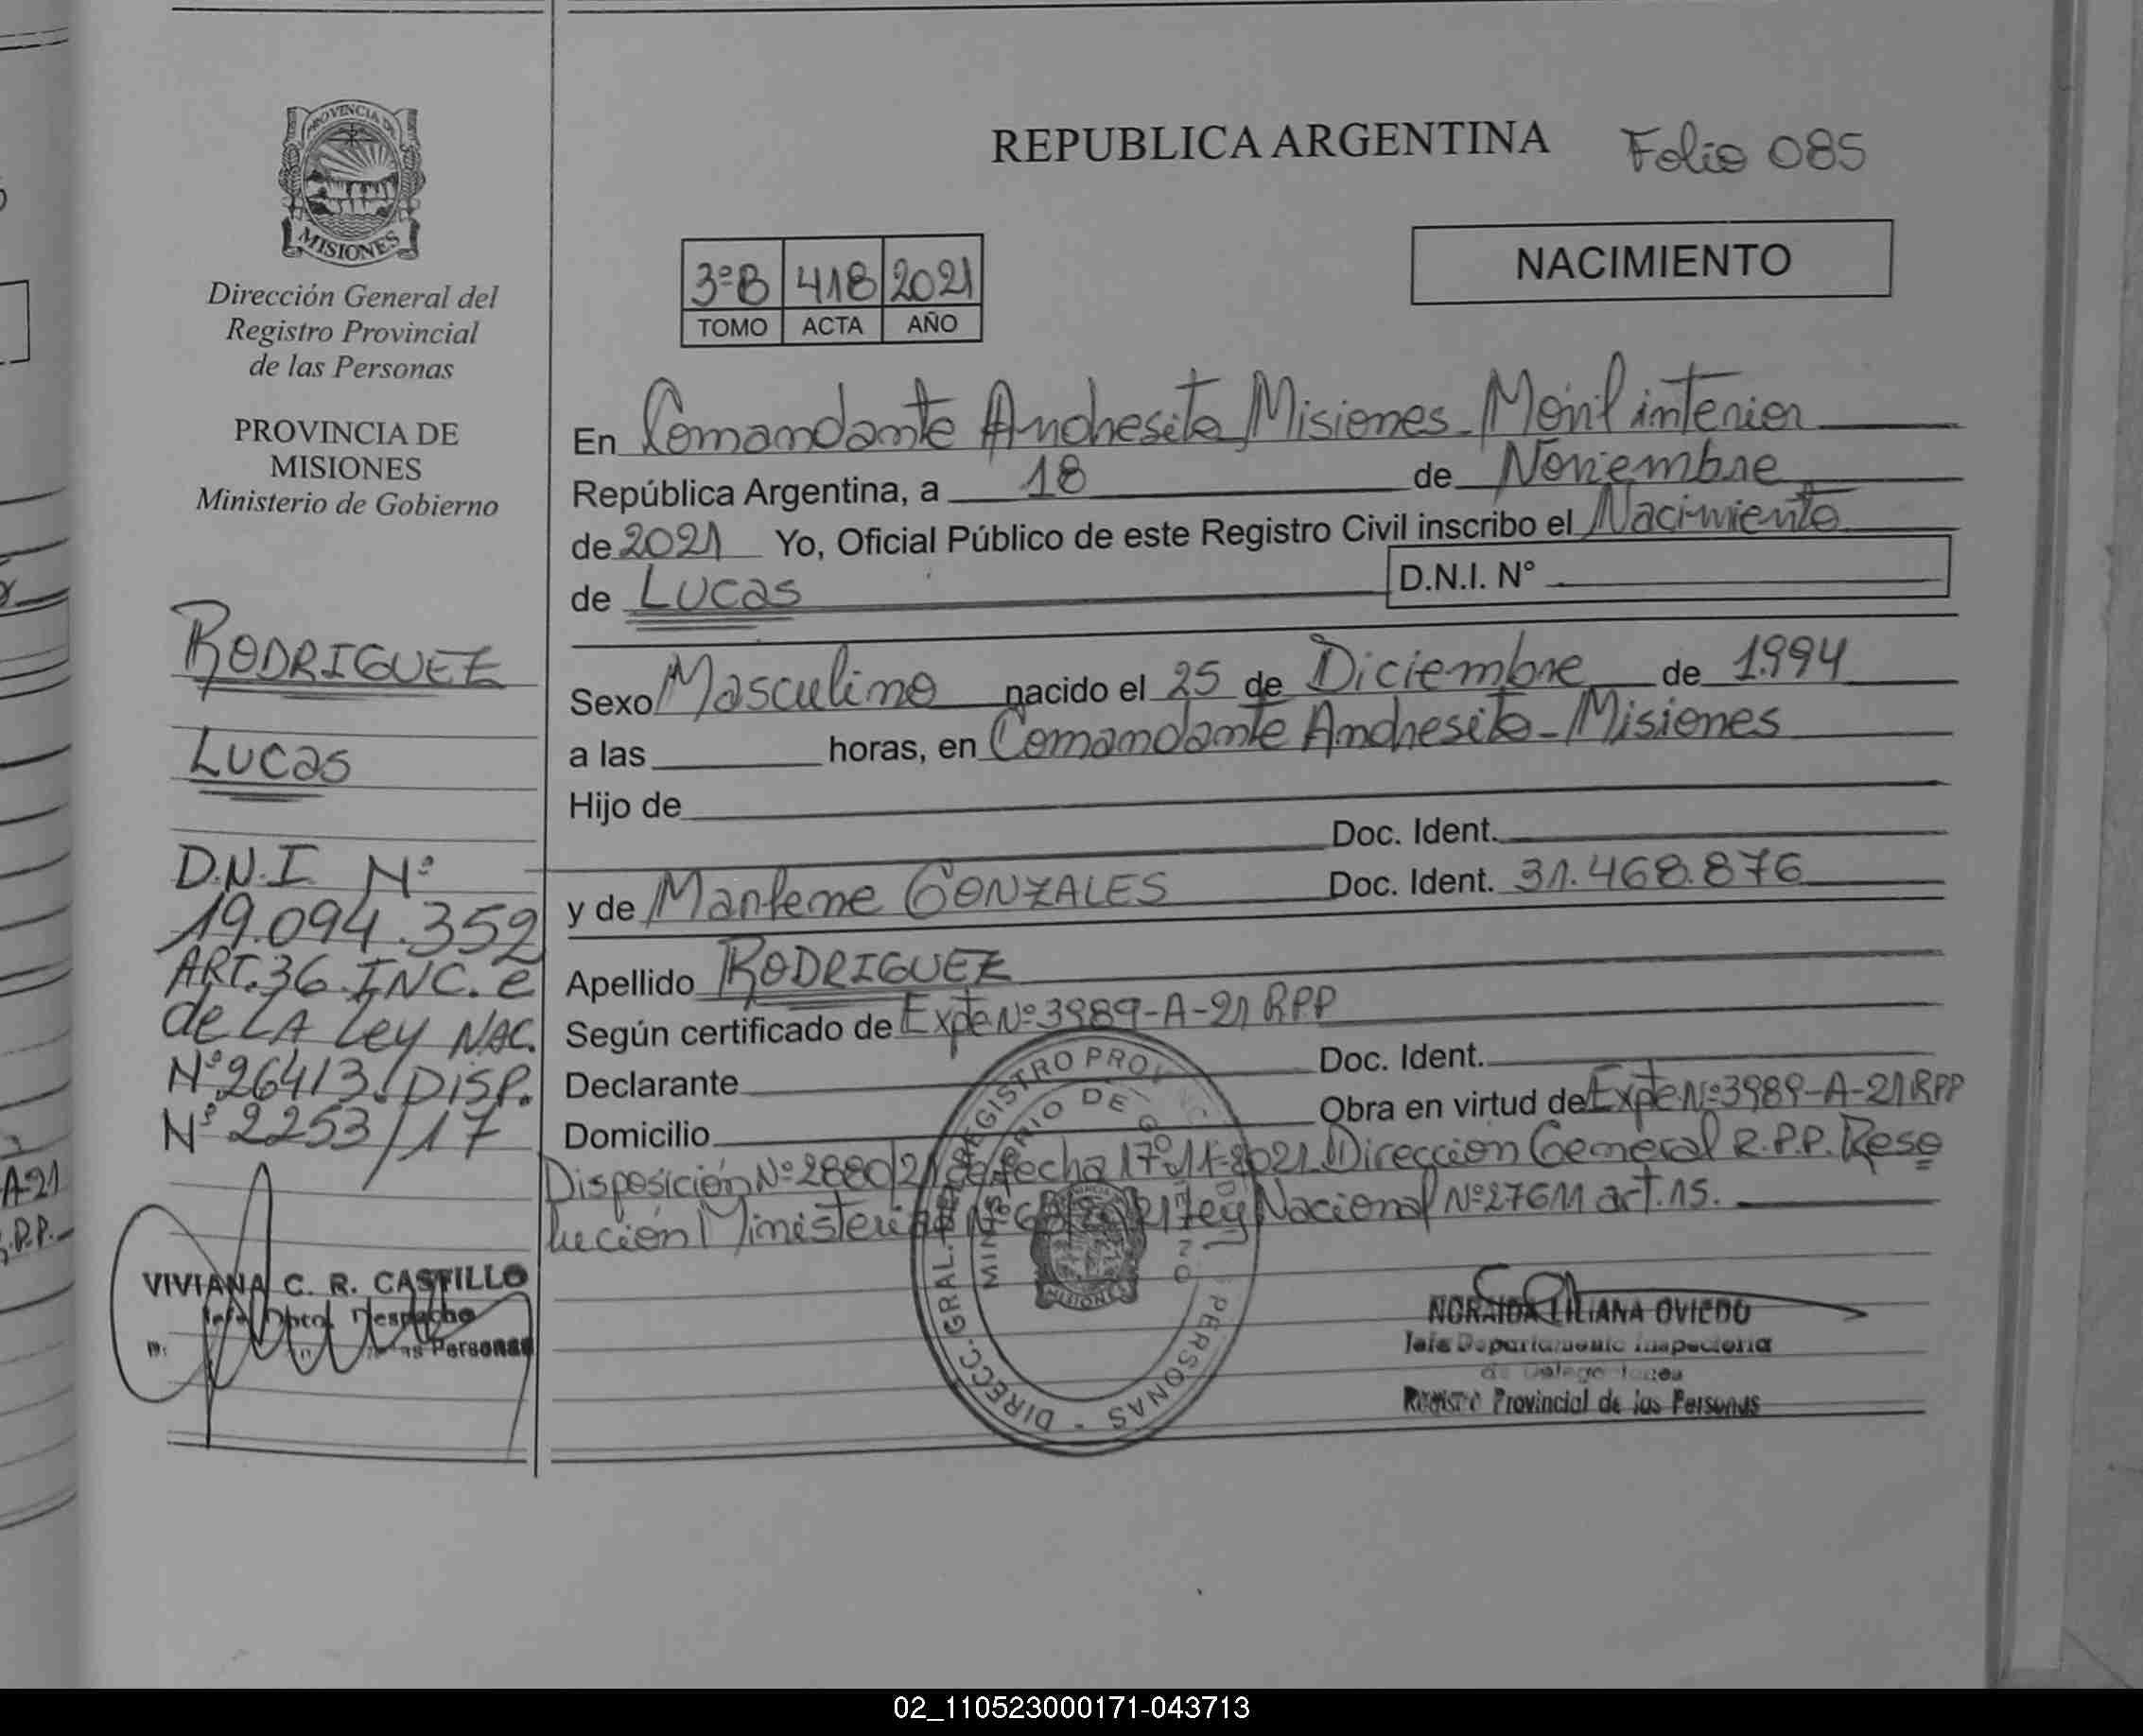 PROVINCIA DE
MISIONES
Dirección General del
Registro Provincial
de las Personas
PROVINCIA DE
MISIONES
Ministerio de Gobierno
RODRIGUEZ
Lucas
D.N.I. Nº
19.094.352
ART.36.INC.e
de LA Ley NAC.
Nº26413.DISP.
Nº 2253/17
VIVIANA C. R. CASTILLO
Despacho
Personas
REPUBLICA ARGENTINA Folio 085
NACIMIENTO
3ºB 418 2021
TOMO ACTA AÑO
En Comandante Andresito Misiones. Móvil interior
República Argentina, a 18 de Noviembre
de 2021 Yo, Oficial Público de este Registro Civil inscribo el Nacimiento
de Lucas D.N.I. N°
Sexo Masculino nacido el 25 de Diciembre de 1.994
a las horas, en Comandante Andresito - Misiones
Hijo de
Doc. Ident.
y de Marlene GONZALES Doc. Ident. 31.468.876
Apellido RODRIGUEZ
Según certificado de Expte Nº 3989-A-21 RPP
Declarante Doc. Ident.
Domicilio Obra en virtud de Expte Nº 3989-A-21 RPP
Disposición Nº 2880/21 de fecha 17-11-2021 Dirección General R.P.P. Reso
lución Ministerial Ley Nacional Nº 27611 art. 15.
DIRECC. GRAL. REGISTRO PROV PERSONAS
MISIONES
NORAIDA LILIANA OVIEDO
Jefa Departamento Inspectoria
de Delegaciones
Registro Provincial de las Personas
A-21
.P.P.
02_110523000171-043713